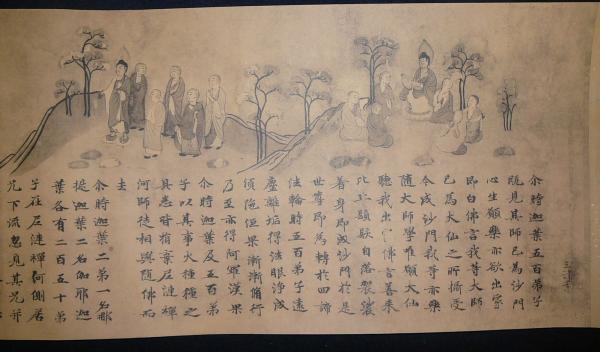 尒時迦葉五百弟子
既見其師已為沙門
心生願樂亦欲出家
即白佛言我等大師
已為大仙之所攝受
今成沙門我等亦樂
隨大師學唯願大仙
聽我出家佛言善来
比丘鬚髮自落袈裟
著身即成沙門於是
世尊即為轉於四諦
法輪時五百弟子遠
塵離垢得法眼浄成
須陁洹果漸漸脩行
乃至亦得阿羅漢果
尒時迦葉及五百弟
子以其事火種種之
具悉皆棄尼連禪
河師徒相與随佛而
去
尒時迦葉二弟一名那
提迦葉二名伽耶迦
葉各有二百五十弟
子在尼連禪河側居
兄下流忽見其兄并